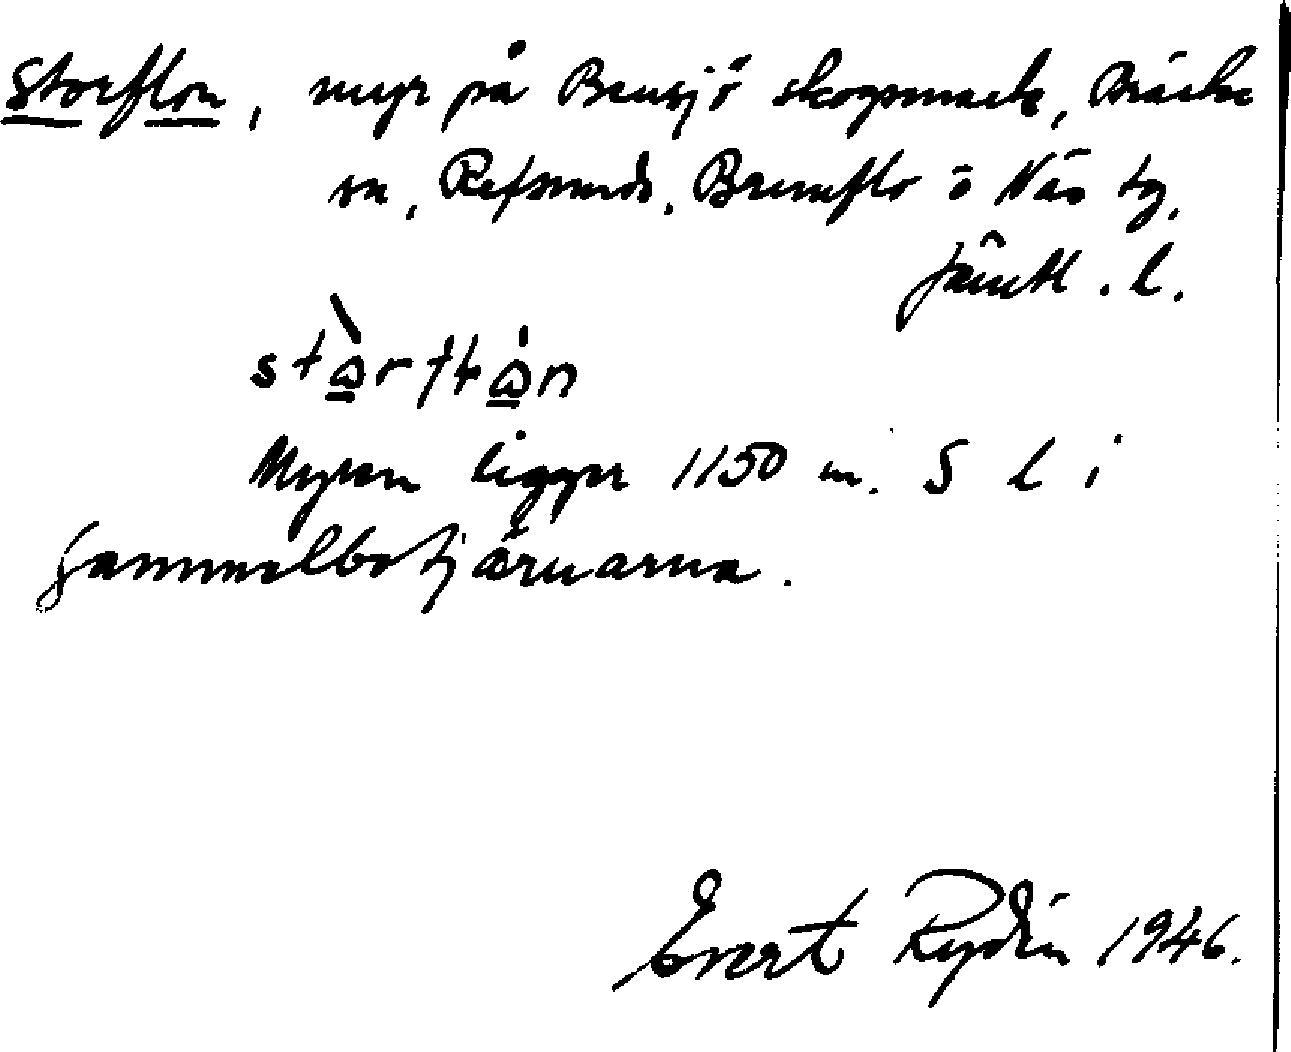 Storflon, myr på Bensjö skogsmark, Bräcke
sn, Refsunds, Brunflo o Näs tg,
Jämtl. l.
Myren ligger 1150 m. S l i
Gammelbotjärnarna.
Evert Rydén 1946.